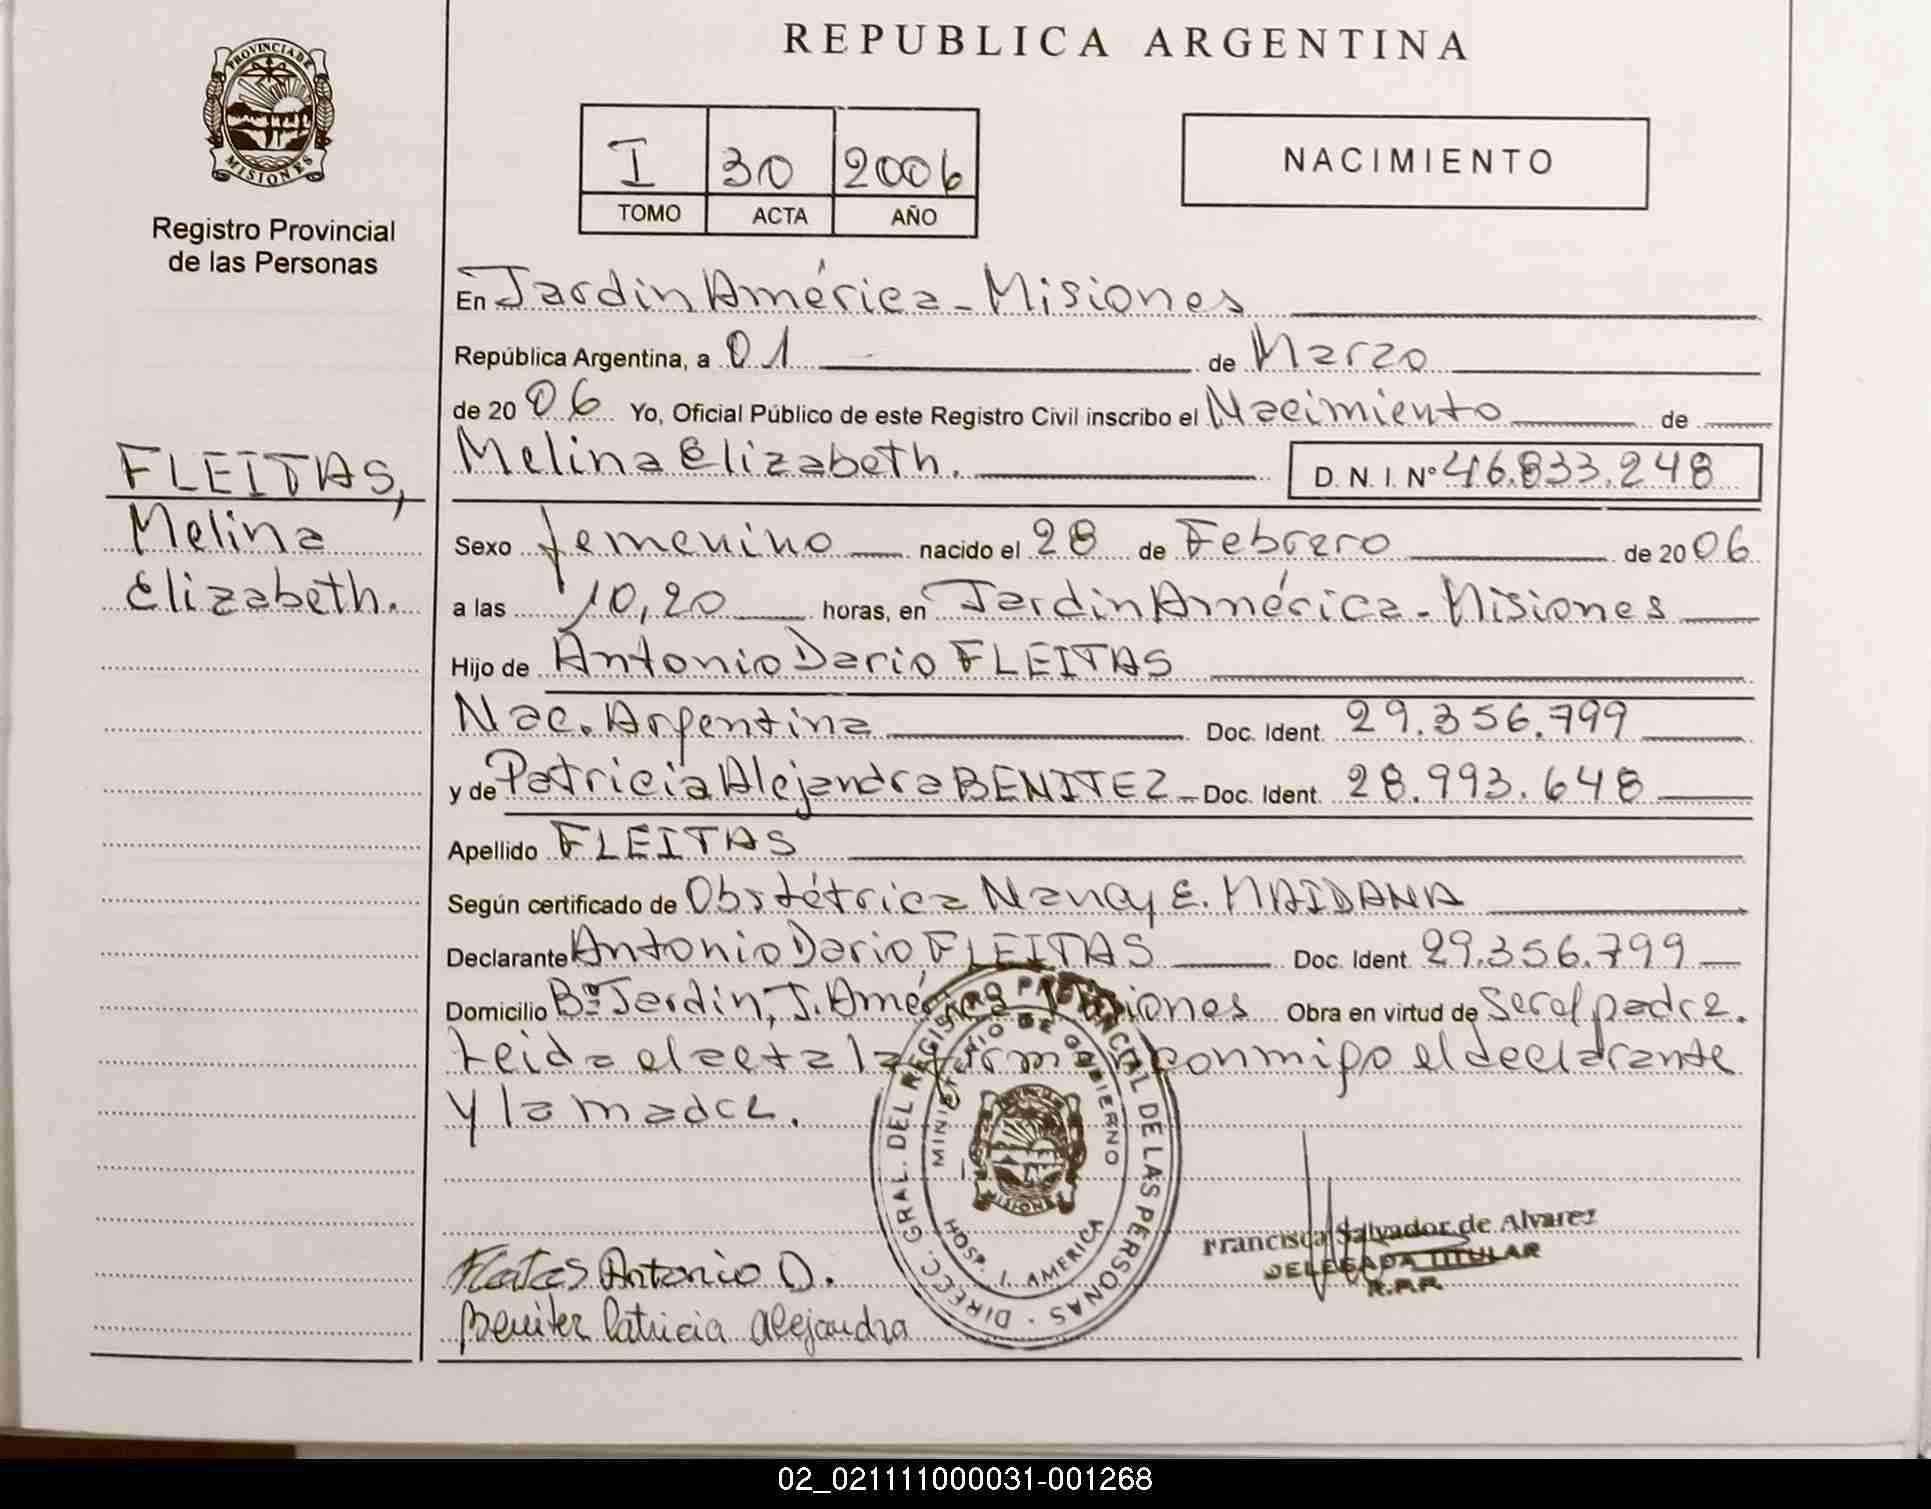 REPUBLICA ARGENTINA
PROVINCIA DE
MISIONES
Registro Provincial
de las Personas
I 30 2006
TOMO ACTA AÑO
NACIMIENTO
En Jardin América - Misiones
República Argentina, a 01 de Marzo
de 2006 Yo, Oficial Público de este Registro Civil inscribo el Nacimiento de
Melina Elizabeth. D. N. I. Nº 46.833.248
FLEITAS,
Melina
Elizabeth.
Sexo femenino nacido el 28 de Febrero de 2006
a las 10,20 horas, en Jardin América - Misiones
Hijo de Antonio Dario FLEITAS
Nac. Argentina Doc. Ident. 29.356.799
y de Patricia Alejandra BENITEZ - Doc. Ident. 28.993.648
Apellido FLEITAS
Según certificado de Obstétrica Nancy E. MAIDANA
Declarante Antonio Dario FLEITAS Doc. Ident. 29.356.799
Domicilio Bº Jardin, J. América Misiones Obra en virtud de ser el padre.
Leida el acta la firman conmigo el declarante
y la madre.
DIREC. GRAL. DEL REGISTRO PROVINCIAL DE LAS PERSONAS
MINISTERIO DE GOBIERNO
HOSP. J. AMERICA
MISIONES
Francisca Salvador de Alvarez
DELEGADA TITULAR
R.P.P.
Fleitas Antonio D.
Benitez Patricia Alejandra
02_021111000031-001268